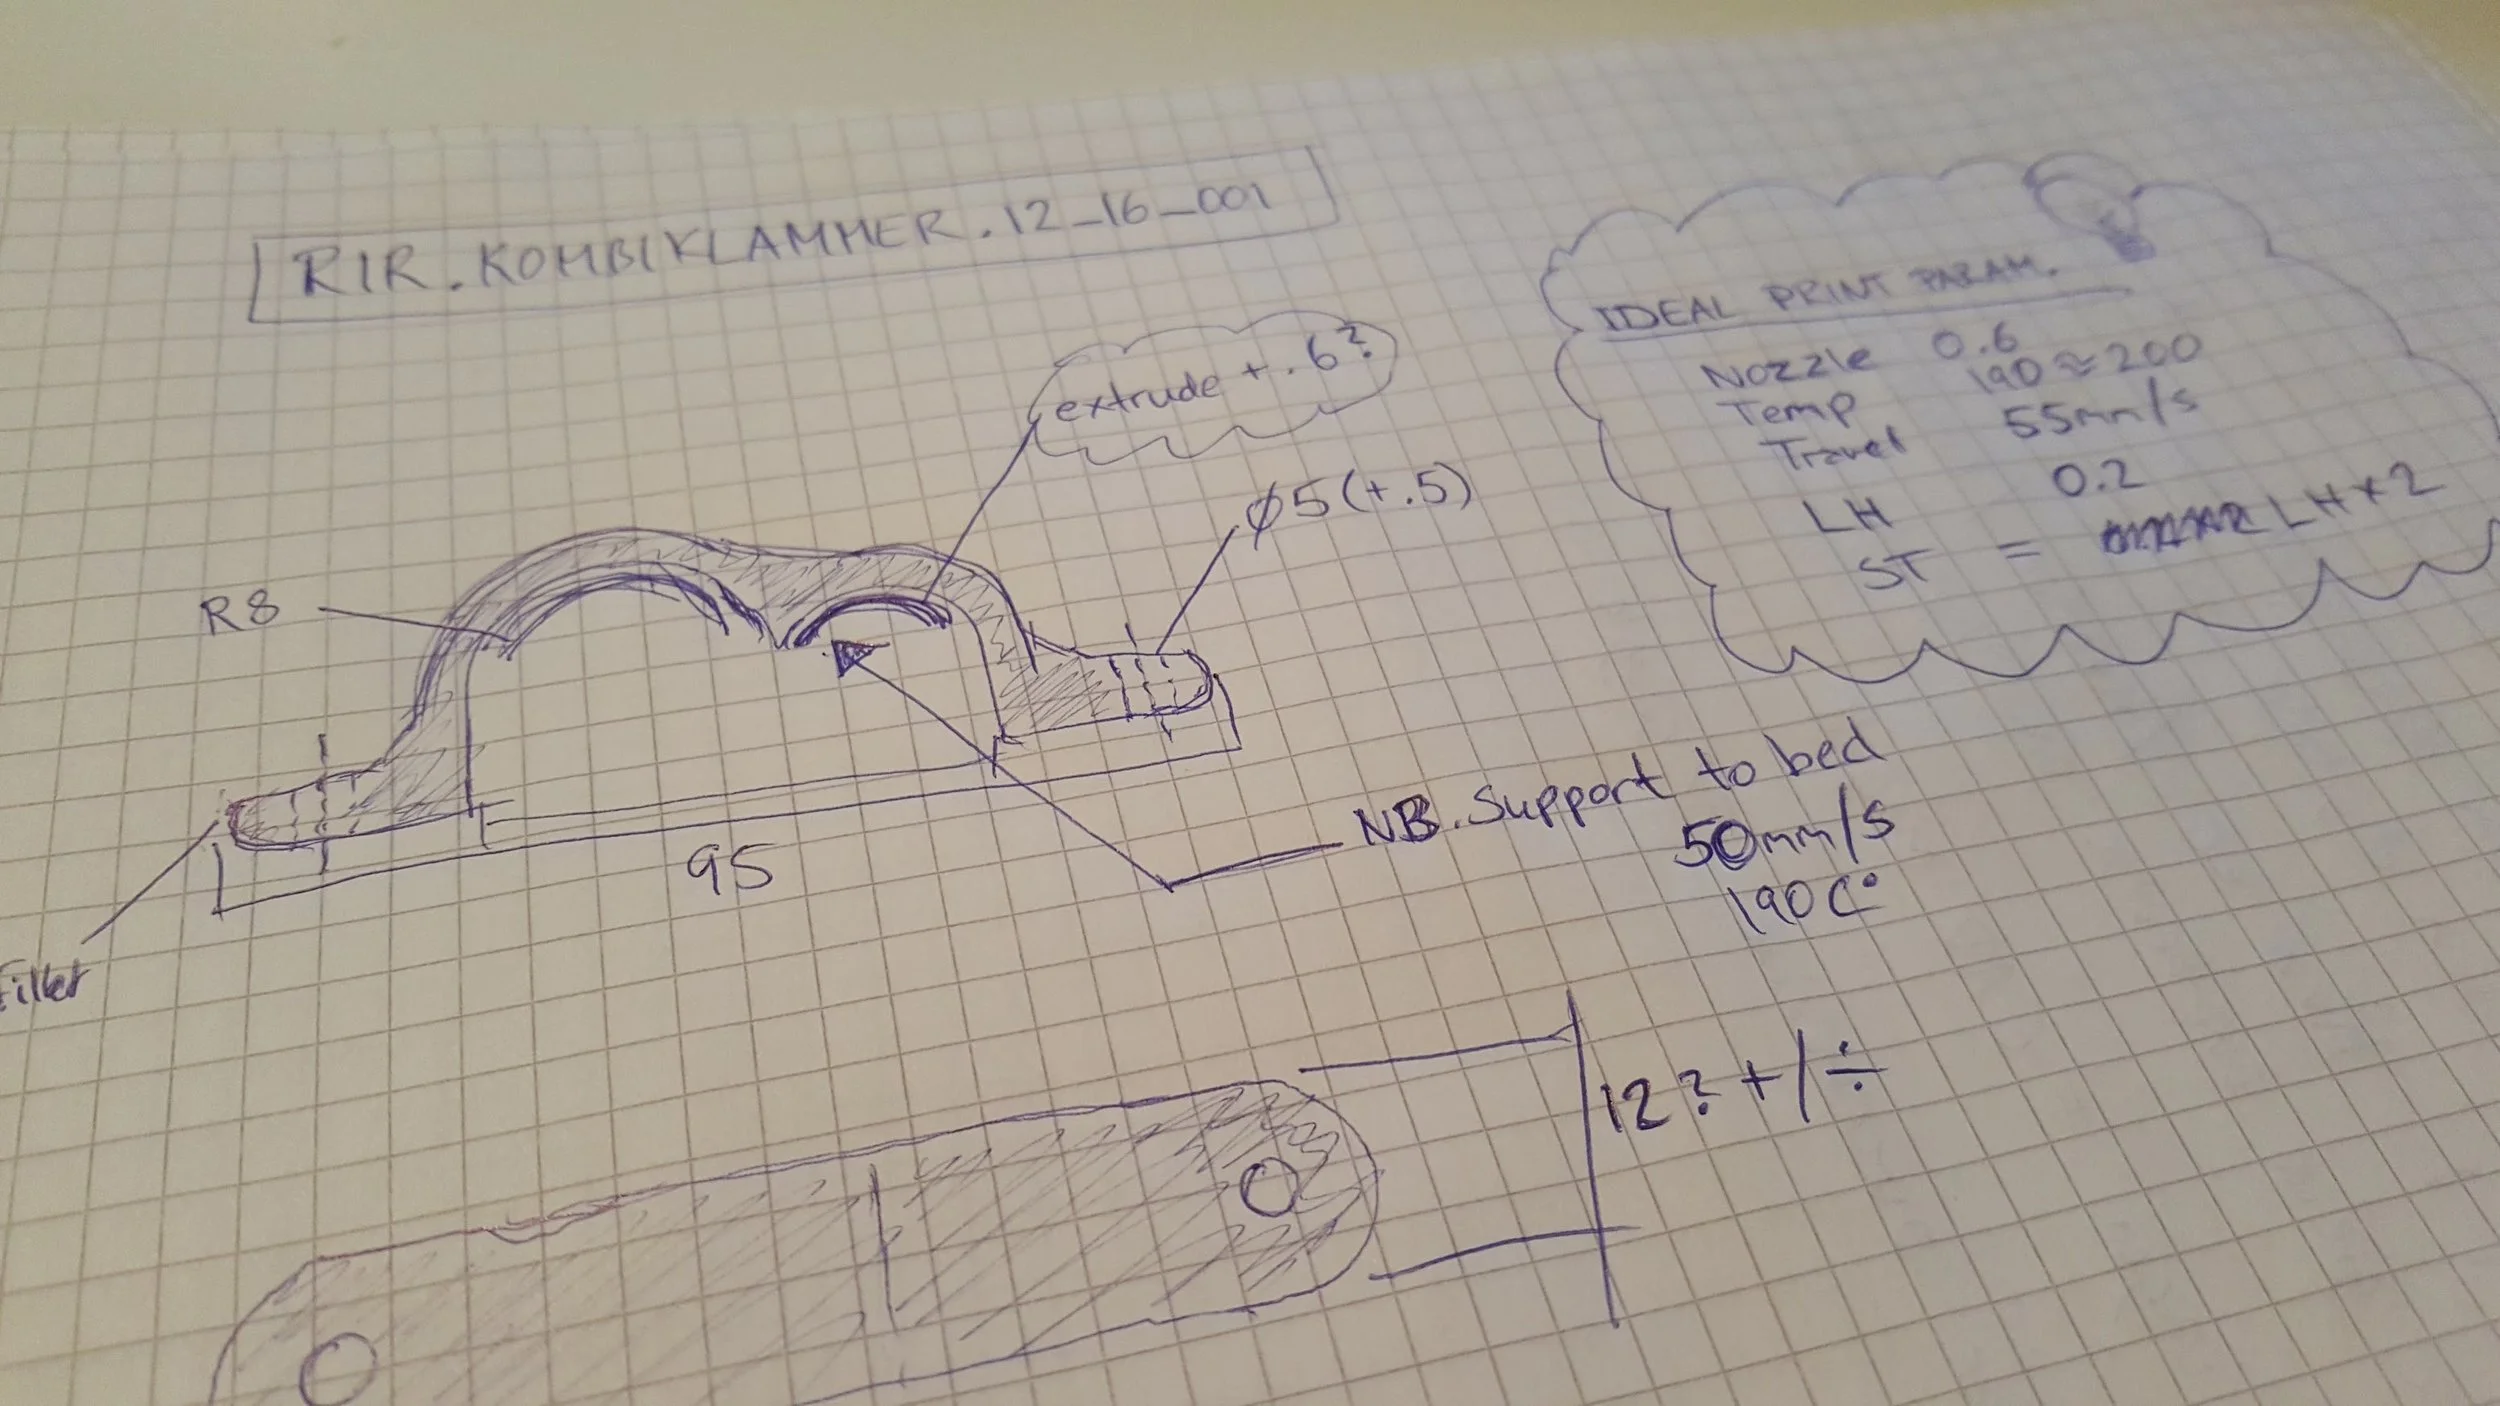 RIR.KOMBIKLAMMER.12_16_001
IDEAL PRINT PARAM.
Nozzle 0.6
Temp 190≈200
Travel 55mm/s
LH 0.2
ST = LH×2
extrude +.6?
Ø5(+.5)
R8
NB. Support to bed
50mm/s
190C°
95
Fillet
12? +/÷